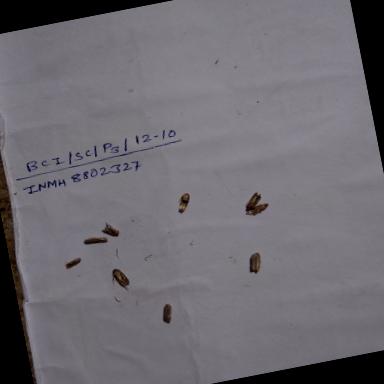 BCI/SC/P3/12-10
INMH 8802327